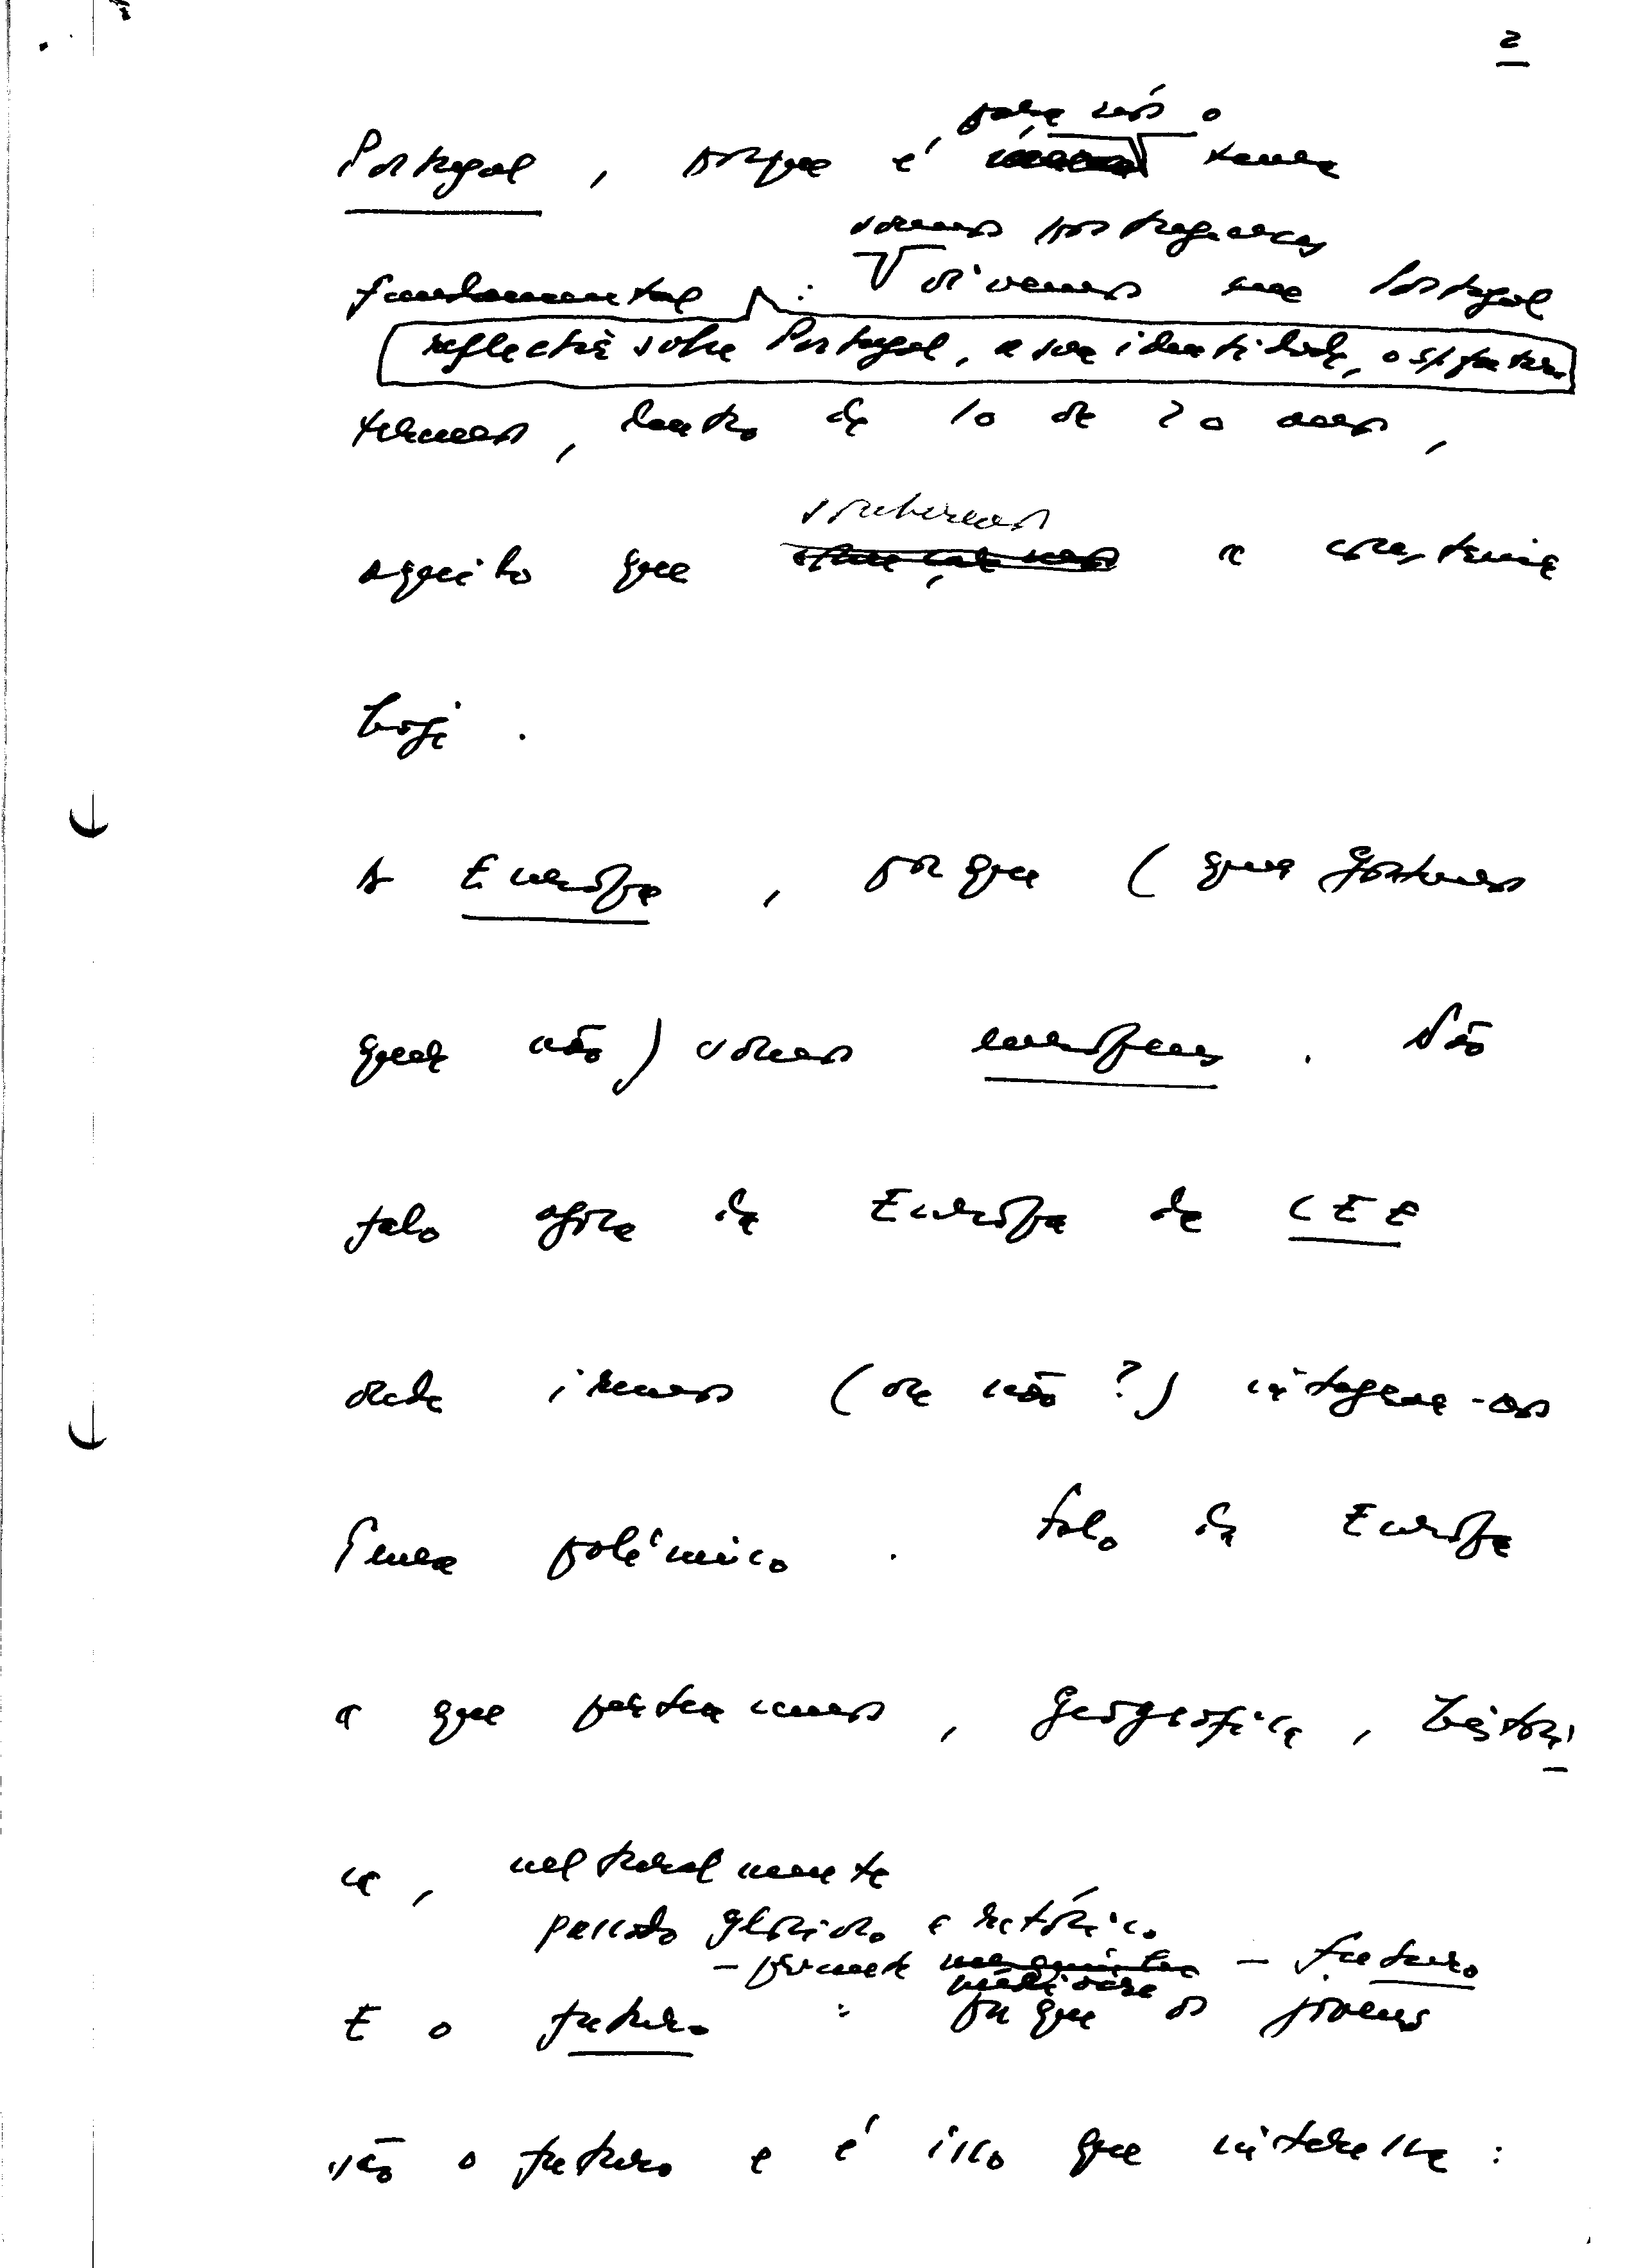 2
para nós o
Portugal, porque é tema
somos portugueses
fundamental : vivemos em Portugal
reflectir sobre Portugal, a sua identidade, o s/ futuro
teremos, dentro de 10 ou 20 anos,
aquilo que soubermos
a construir
hoje.
A Europa, porque (quer gostemos
quer não) somos europeus. Não
falo agora da Europa da CEE
onde iremos (ou não?) integrar-nos
Tema polémico. Falo da Europa
a que pertencemos, geográfica, históri
ca, culturalmente
passado glorioso e retórico
- presente medíocre - futuro
E o futuro : porque os jovens
são o futuro e é isso que interessa :